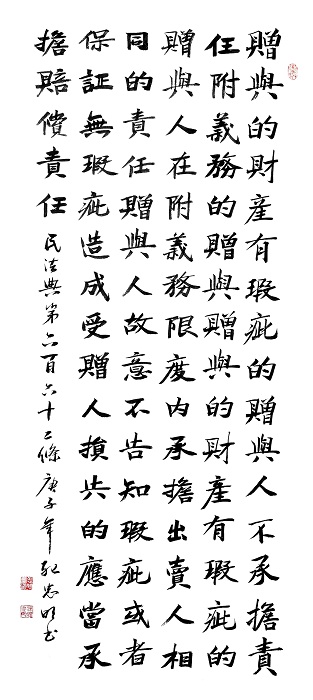 贈與的財産有瑕疵的贈與人不承擔責
任附義務的贈與贈與的財産有瑕疵的
贈與人在附義務限度内承擔出賣人相
同的責任贈與人故意不告知瑕疵或者
保証無瑕疵造成受贈人損失的應當承
擔賠償責任 民法典第六百六十二條 庚子年